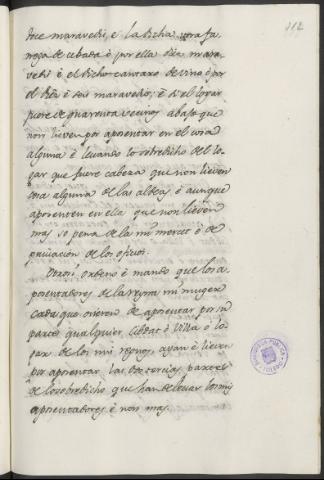 112
doce maravedis, e la dicha otra fa
nega de cebada è por ella diez mara
vedis è el dicho cantaro de vino è por
el dies è seis maravedis, è si el logar
fuere de quarenta vecinos abajo que
non lieven por aposentar en el cosa
alguna è levando lo sobredicho del lo
gar que fuere cabeza que non lieven
cosa alguna de las aldeas è aunque
aposenten en ella que non lieven
mas, so pena de la mi merced è de
privacion de los oficios.
Otrosi, ordeno è mando que los a
posentadores de la reyna mi muger
cada que ovieren de aposentar por su
parte qualquier cibdat è Villa ò lo
gar de los mis regnos, ayan è lieven
por aposentar las dos tercias partes
de lo sobredicho que han de levar los mis
aposentadores è non mas.
BIBLIOTECA PUBLICA
TOLEDO